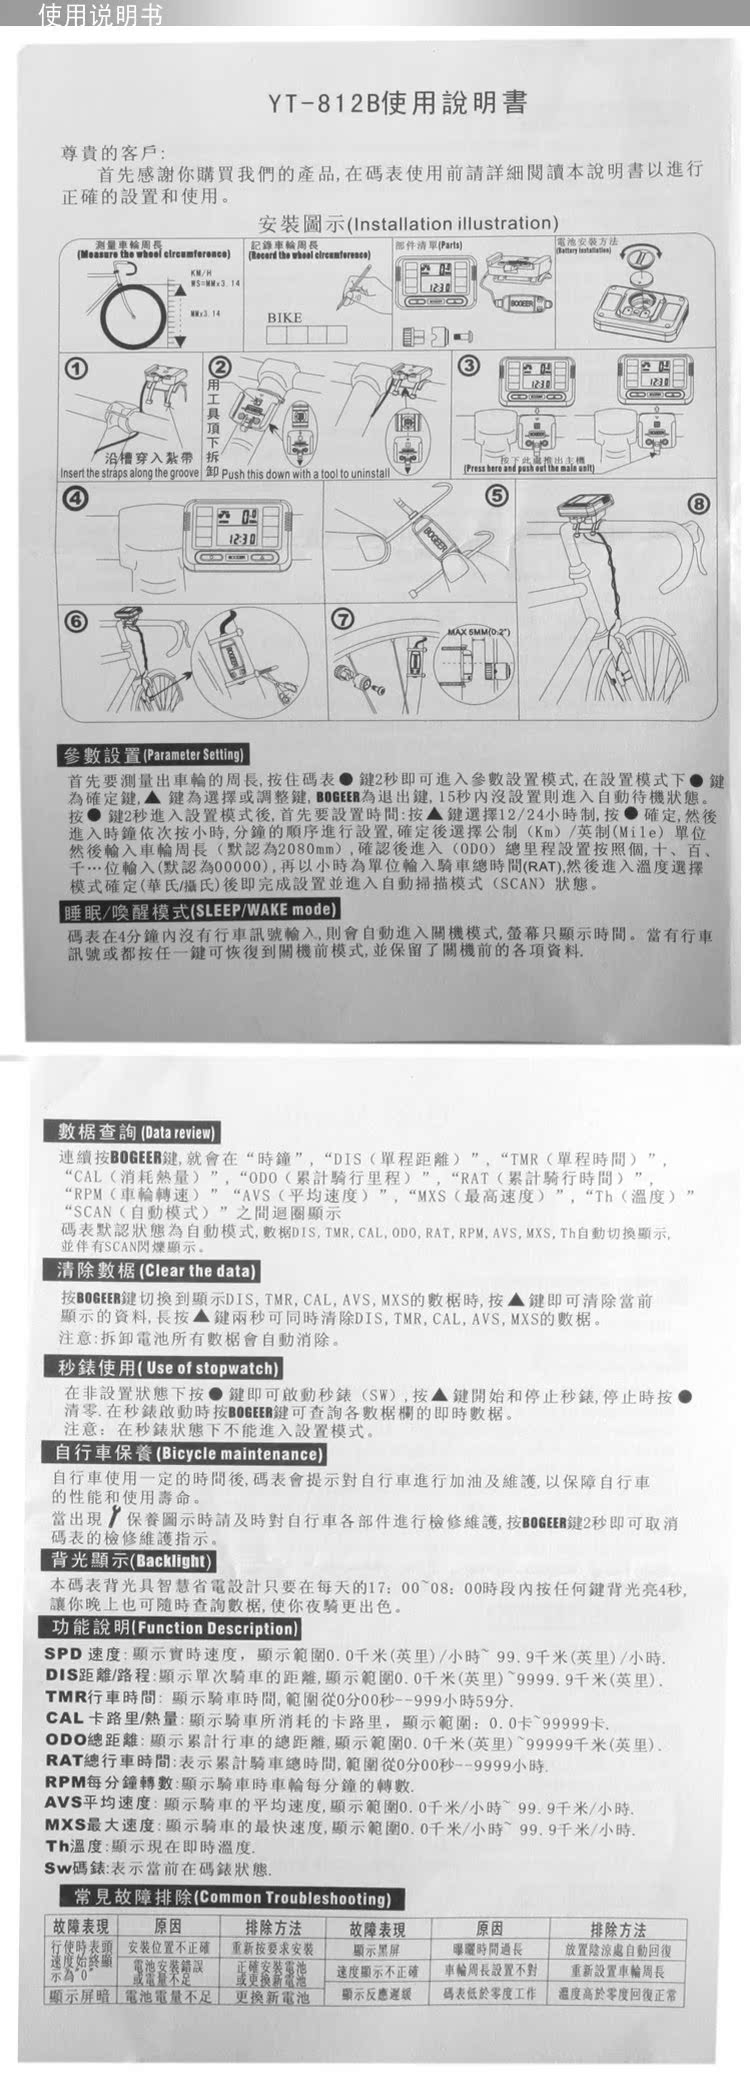 使用说明书
YT-812B使用說明書
尊貴的客戶:
首先感謝你購買我們的產品,在碼表使用前請詳細閱讀本說明書以進行
正確的設置和使用。
安裝圖示(Installation illustration)
測量車輪周長
(Measure the wheel circumference)
KM/H
WS=MMx3.14
MMx3.14
記錄車輪周長
(Record the wheel circumference)
BIKE
部件清單(Parts)
BOGEER
電池安裝方法
(Battery installation)
①
沿槽穿入紮帶
Insert the straps along the groove
②
用工具頂下拆卸
Push this down with a tool to uninstall
③
12:30
12:30
按下此處推出主機
(Press here and push out the main unit)
④
12:30
⑤
BOGEER
⑧
⑥
BOGEER
⑦
MAX 5MM(0.2")
參數設置(Parameter Setting)
首先要測量出車輪的周長,按住碼表● 鍵2秒即可進入參數設置模式,在設置模式下● 鍵
為確定鍵,▲ 鍵為選擇或調整鍵, BOGEER為退出鍵, 15秒內沒設置則進入自動待機狀態。
按● 鍵2秒進入設置模式後,首先要設置時間:按▲鍵選擇12/24小時制,按● 確定,然後
進入時鐘依次按小時,分鐘的順序進行設置,確定後選擇公制（Km）/英制(Mile) 單位
然後輸入車輪周長（默認為2080mm）,確認後進入（ODO）總里程設置按照個,十、百、
千…位輸入(默認為00000),再以小時為單位輸入騎車總時間(RAT),然後進入溫度選擇
模式確定(華氏/攝氏)後即完成設置並進入自動掃描模式（SCAN）狀態。
睡眠/喚醒模式(SLEEP/WAKE mode)
碼表在4分鐘內沒有行車訊號輸入,則會自動進入關機模式,螢幕只顯示時間。當有行車
訊號或都按任一鍵可恢復到關機前模式,並保留了關機前的各項資料.
數椐查詢(Data review)
連續按BOGEER鍵,就會在“時鐘”,“DIS（單程距離）”,“TMR（單程時間）”,
“CAL（消耗熱量）”,“ODO（累計騎行里程）”,“RAT（累計騎行時間）”,
“RPM（車輪轉速）”“AVS（平均速度）”,“MXS（最高速度）”,“Th（溫度）”
“SCAN（自動模式）”之間迴圈顯示
碼表默認狀態為自動模式,數椐DIS, TMR, CAL, ODO, RAT, RPM, AVS, MXS, Th自動切換顯示,
並伴有SCAN閃爍顯示。
清除數椐(Clear the data)
按BOGEER鍵切換到顯示DIS, TMR, CAL, AVS, MXS的數椐時,按▲鍵即可清除當前
顯示的資料,長按▲鍵兩秒可同時清除DIS, TMR, CAL, AVS, MXS的數椐。
注意:拆卸電池所有數椐會自動消除。
秒錶使用( Use of stopwatch)
在非設置狀態下按● 鍵即可啟動秒錶（SW）,按▲鍵開始和停止秒錶,停止時按●
清零.在秒錶啟動時按BOGEER鍵可查詢各數椐欄的即時數椐。
注意：在秒錶狀態下不能進入設置模式。
自行車保養(Bicycle maintenance)
自行車使用一定的時間後,碼表會提示對自行車進行加油及維護,以保障自行車
的性能和使用壽命。
當出現 保養圖示時請及時對自行車各部件進行檢修維護,按BOGEER鍵2秒即可取消
碼表的檢修維護指示。
背光顯示(Backlight)
本碼表背光具智慧省電設計只要在每天的17：00~08：00時段內按任何鍵背光亮4秒,
讓你晚上也可隨時查詢數椐,使你夜騎更出色。
功能說明(Function Description)
SPD 速度: 顯示實時速度，顯示範圍0.0千米(英里)/小時~ 99.9千米(英里)/小時.
DIS距離/路程:顯示單次騎車的距離,顯示範圍0.0千米(英里)~9999.9千米(英里).
TMR行車時間: 顯示騎車時間,範圍從0分00秒--999小時59分.
CAL 卡路里/熱量:顯示騎車所消耗的卡路里，顯示範圍：0.0卡~99999卡.
ODO總距離:顯示累計行車的總距離,顯示範圍0.0千米(英里)~99999千米(英里).
RAT總行車時間:表示累計騎車總時間,範圍從0分00秒--9999小時.
RPM每分鐘轉數:顯示騎車時車輪每分鐘的轉數.
AVS平均速度: 顯示騎車的平均速度,顯示範圍0.0千米/小時~ 99.9千米/小時.
MXS最大速度:顯示騎車的最快速度,顯示範圍0.0千米/小時~ 99.9千米/小時.
Th溫度:顯示現在即時溫度.
Sw碼錶:表示當前在碼錶狀態.
常見故障排除(Common Troubleshooting)
故障表現 原因 排除方法 故障表現 原因 排除方法
行使時表頭速度始終顯示為"0" 安裝位置不正確 重新按要求安裝 顯示黑屏 曝曬時間過長 放置陰涼處自動回復
電池安裝錯誤或電量不足 正確安裝電池或更換新電池 速度顯示不正確 車輪周長設置不對 重新設置車輪周長
顯示屏暗 電池電量不足 更換新電池 顯示反應遲緩 碼表低於零度工作 溫度高於零度回復正常